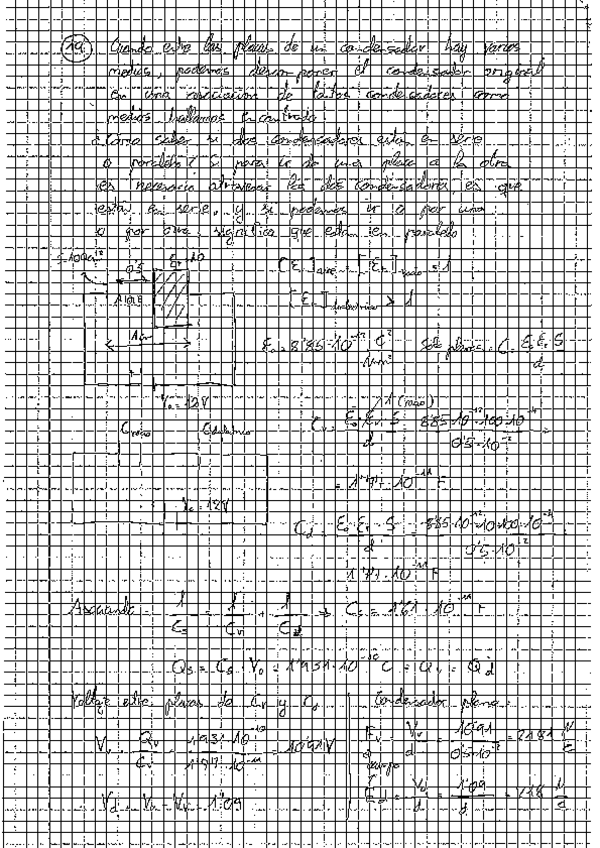 19. Cuando entre las placas de un condensador hay varios
medios, podemos descomponer el condensador original
en una asociación de tantos condensadores como
medios hallamos encontrado.
¿Cómo saber si dos condensadores están en serie
o paralelo? Si para ir de una placa a la otra
es necesario atravesar los dos condensadores, es que
están en serie, y si podemos ir o por uno
o por otro, significa que están en paralelo
S=100cm² 0'5 εr=10
AIRE
1cm
V₀=12V
[εr]aire = [εr]vacío = 1
[εr]dieléctrico > 1
ε₀ = 8'85·10⁻¹² C²/N·m² C = ε₀ εr S / d
Cvacío Cdieléctrico
V₀=12V
1 (vacío)
Cv = ε₀·εr·S / d = 8'85·10⁻¹²·100·10⁻⁴ / 0'5·10⁻² =
= 1'77·10⁻¹¹ F
Cd = ε₀ εr·S / d = 8'85·10⁻¹²·10·100·10⁻⁴ / 0'5·10⁻²
1'77·10⁻¹¹ F
Asociando: 1/Cs = 1/Cv + 1/Cd ⇒ Cs = 1'61·10⁻¹¹ F
Qs = Cs·V₀ = 1'931·10⁻¹⁰ C = Qv = Qd
Voltaje entre placas de Cv y Cd
Vv = Qv/Cv = 1'931·10⁻¹⁰ / 1'77·10⁻¹¹ = 10'91V
Vd = V₀ - Vv = 1'09
Condensador plano:
Ev = Vv/d = 10'91 / 0'5·10⁻² = 2181 N/C
campo
Ed = Vd/d = 1'09/d = 218 N/C